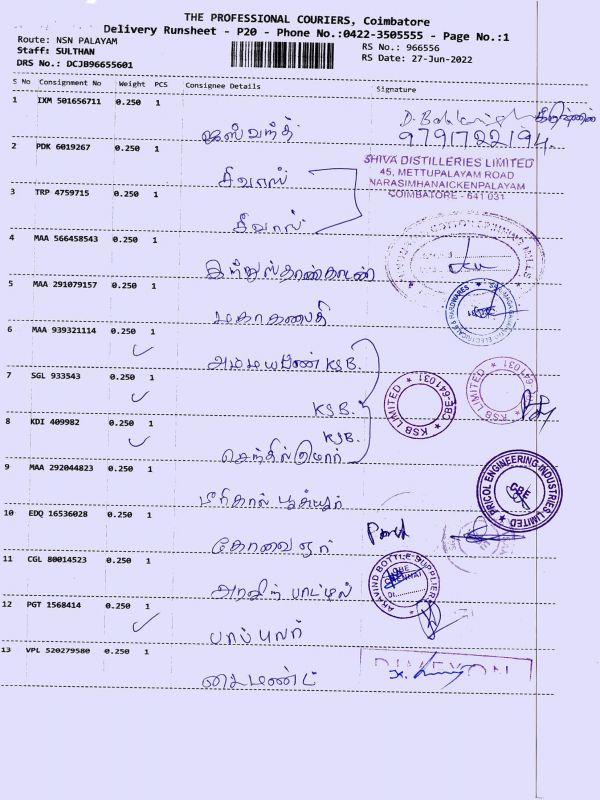 THE PROFESSIONAL COURIERS, Coimbatore
Delivery Runsheet - P20 - Phone No.:0422-3505555 - Page No.:1
Route: NSN PALAYAM
RS No.: 966556
Staff: SULTHAN
RS Date: 27-Jun-2022
DRS No.: DCJB96655601
S No Consignment No Weight PCS Consignee Details Signature
1 IXM 501656711 0.250 1
ஜஸ்வந்த் 9791722194
2 PDK 6019267 0.250 1
SHIVA DISTILLERIES LIMITED
45, METTUPALAYAM ROAD
NARASIMHANAICKENPALAYAM
COIMBATORE - 641 031
சிவாஸ்
3 TRP 4759715 0.250 1
சிவாஸ்
4 MAA 566458543 0.250 1
இந்துஸ்தான்
5 MAA 291079157 0.250 1
மகாகணபதி
6 MAA 939321114 0.250 1
KSB.
7 SGL 933543 0.250 1
KSB.
KSB LIMITED CBE-641031
8 KDI 409982 0.250 1
KSB.
செந்தில்குமார்
9 MAA 292044823 0.250 1
PRICOL ENGINEERING INDUSTRIES LIMITED
CBE
10 EDQ 16536028 0.250 1
கோவை
11 CGL 80014523 0.250 1
ARAVIND BOTTLE SUPPLIER
அரவிந் பாட்டில்
12 PGT 1568414 0.250 1
பாப்புலர்
13 VPL 520279580 0.250 1
டைமண்ட்